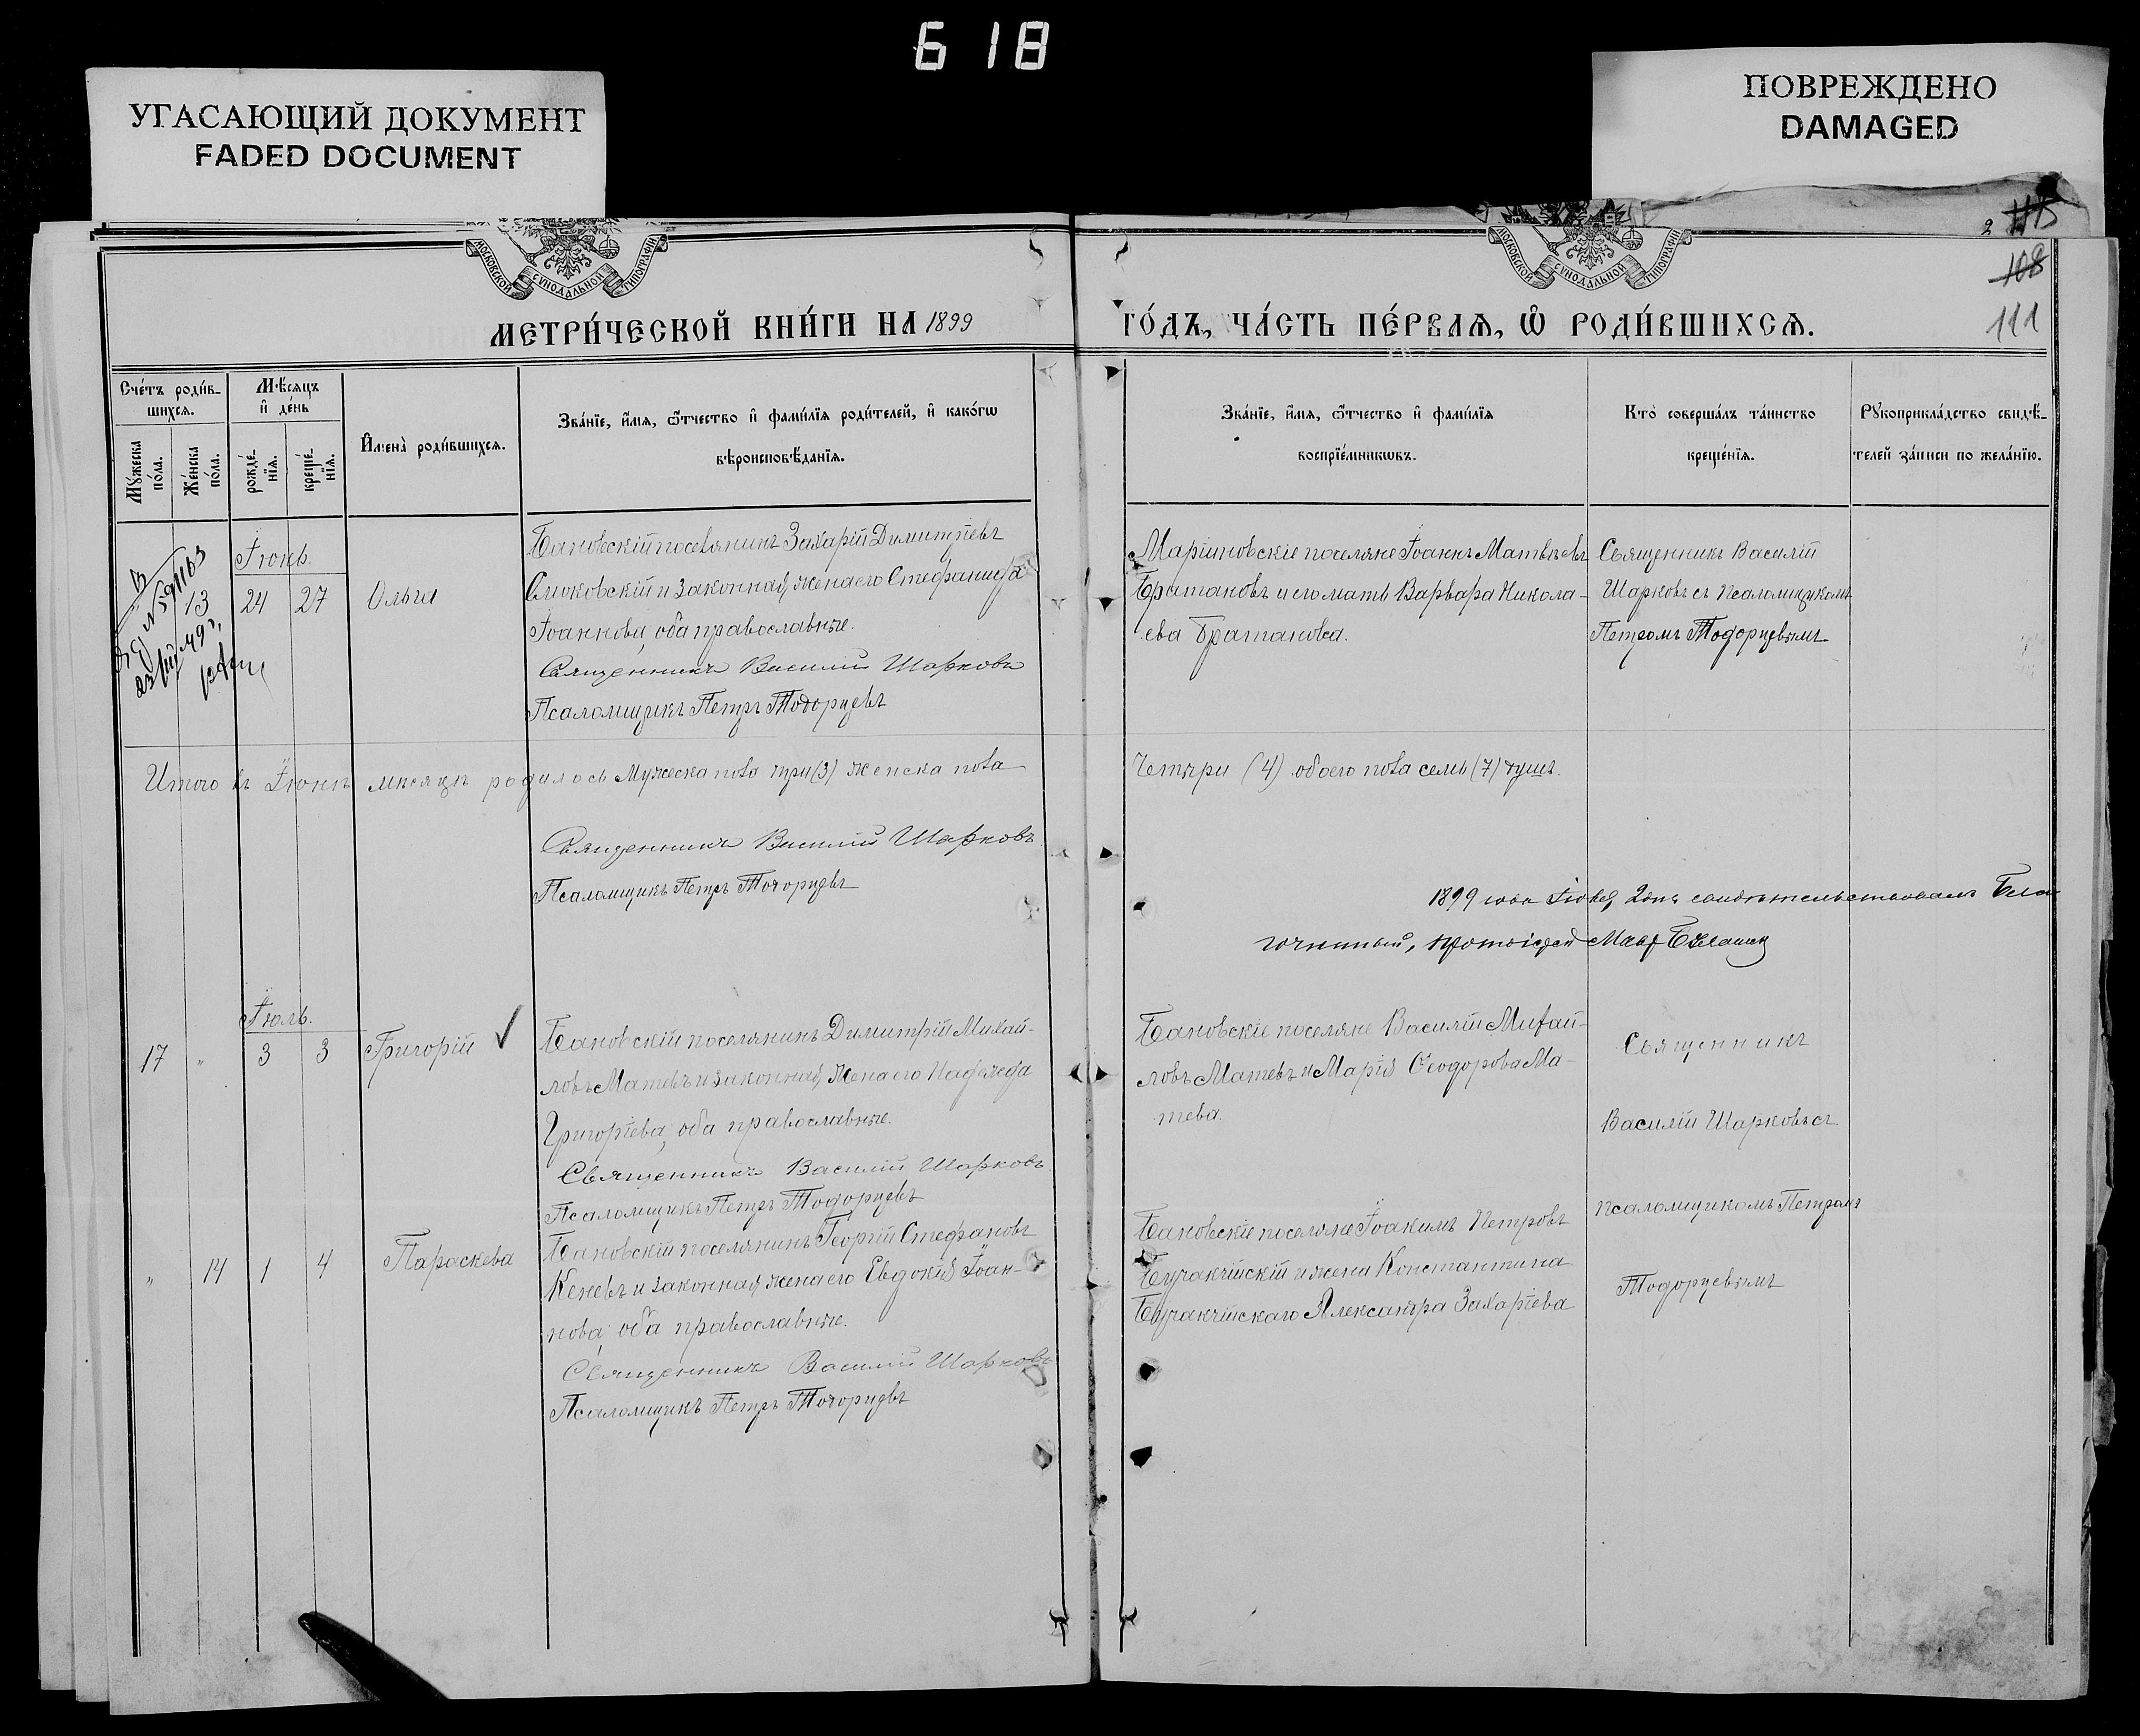 618
УГАСАЮЩИЙ ДОКУМЕНТ
FADED DOCUMENT
ПОВРЕЖДЕНО
DAMAGED
115
108
111
МОСКОВСКОЙ СУНОДАЛЬНОЙ ТИПОГРАФІИ
МОСКОВСКОЙ СУНОДАЛЬНОЙ ТИПОГРАФІИ
МЕТРИ́ЧЕСКОЙ КНИ́ГИ НА 1899
ГО́ДЪ, ЧА́СТЬ ПЕ́РВАѦ, Ѡ РОДИ́ВШИХСѦ.
Сче́тъ роди́в-
шихсѧ.
Мꙋ́жеска по́ла.
Же́нска по́ла.
Мѣ́сѧцъ
и҆ де́нь
рожде́-
нїѧ.
креще́-
нїѧ.
И҆мена̀ роди́вшихсѧ.
Зва́нїе, и҆́мѧ, ѻ҆́тчество и҆ фами́лїѧ роди́телей, и҆ како́гѡ
вѣроисповѣ́данїѧ.
Зва́нїе, и҆́мѧ, ѻ҆́тчество и҆ фами́лїѧ
воспрїе́мникѡвъ.
Кто̀ соверша́лъ та́инство
креще́нїѧ.
Рꙋкоприкла́дство свидѣ́-
телей за́писи по жела́нїю.
Іюнь.
13 24 27 Ольга
Бановскій поселянинъ Захарій Димитріевъ
и законная жена его Стефанида
Іоаннова, оба православные.
Священникъ Василій Шарковъ
Псаломщикъ Петръ Тодорцевъ
Маріиновскіе поселяне Іоаннъ Матвѣевъ
Братановъ и его мать Варвара Никола-
ева Братанова.
Священникъ Василій
Шарковъ съ Псаломщикомъ
Петромъ Тодорцевымъ
Итого въ Іюнѣ мѣсяцѣ родилось Мужеска пола три (3) женска пола
Четыри (4) обоего пола семь (7) душъ.
Священникъ Василій Шарковъ
Псаломщикъ Петръ Тодорцевъ
1899 года Іюля 2 дня свидѣтельствовалъ Бла-
гочинный, протоіерей
Іюль.
17 " 3 3 Григорій
Бановскій поселянинъ Димитрій Михай-
ловъ Матевъ и законная жена его Надежда
Григоріева, оба православные.
Священникъ Василій Шарковъ
Псаломщикъ Петръ Тодорцевъ
Бановскіе поселяне Василій Михай-
ловъ Матевъ и Марія Ѳеодорова Ма-
тева.
Священникъ
Василій Шарковъ съ
псаломщикомъ Петромъ
Тодорцевымъ
" 14 1 4 Параскева
Бановскій поселянинъ Георгій Стефановъ
Кеневъ и законная жена его Евдокія Іоан-
нова, оба православные.
Священникъ Василій Шарковъ
Псаломщикъ Петръ Тодорцевъ
Бановскіе поселяне Іоакимъ Петровъ
и жена Константина
Александра Захаріева